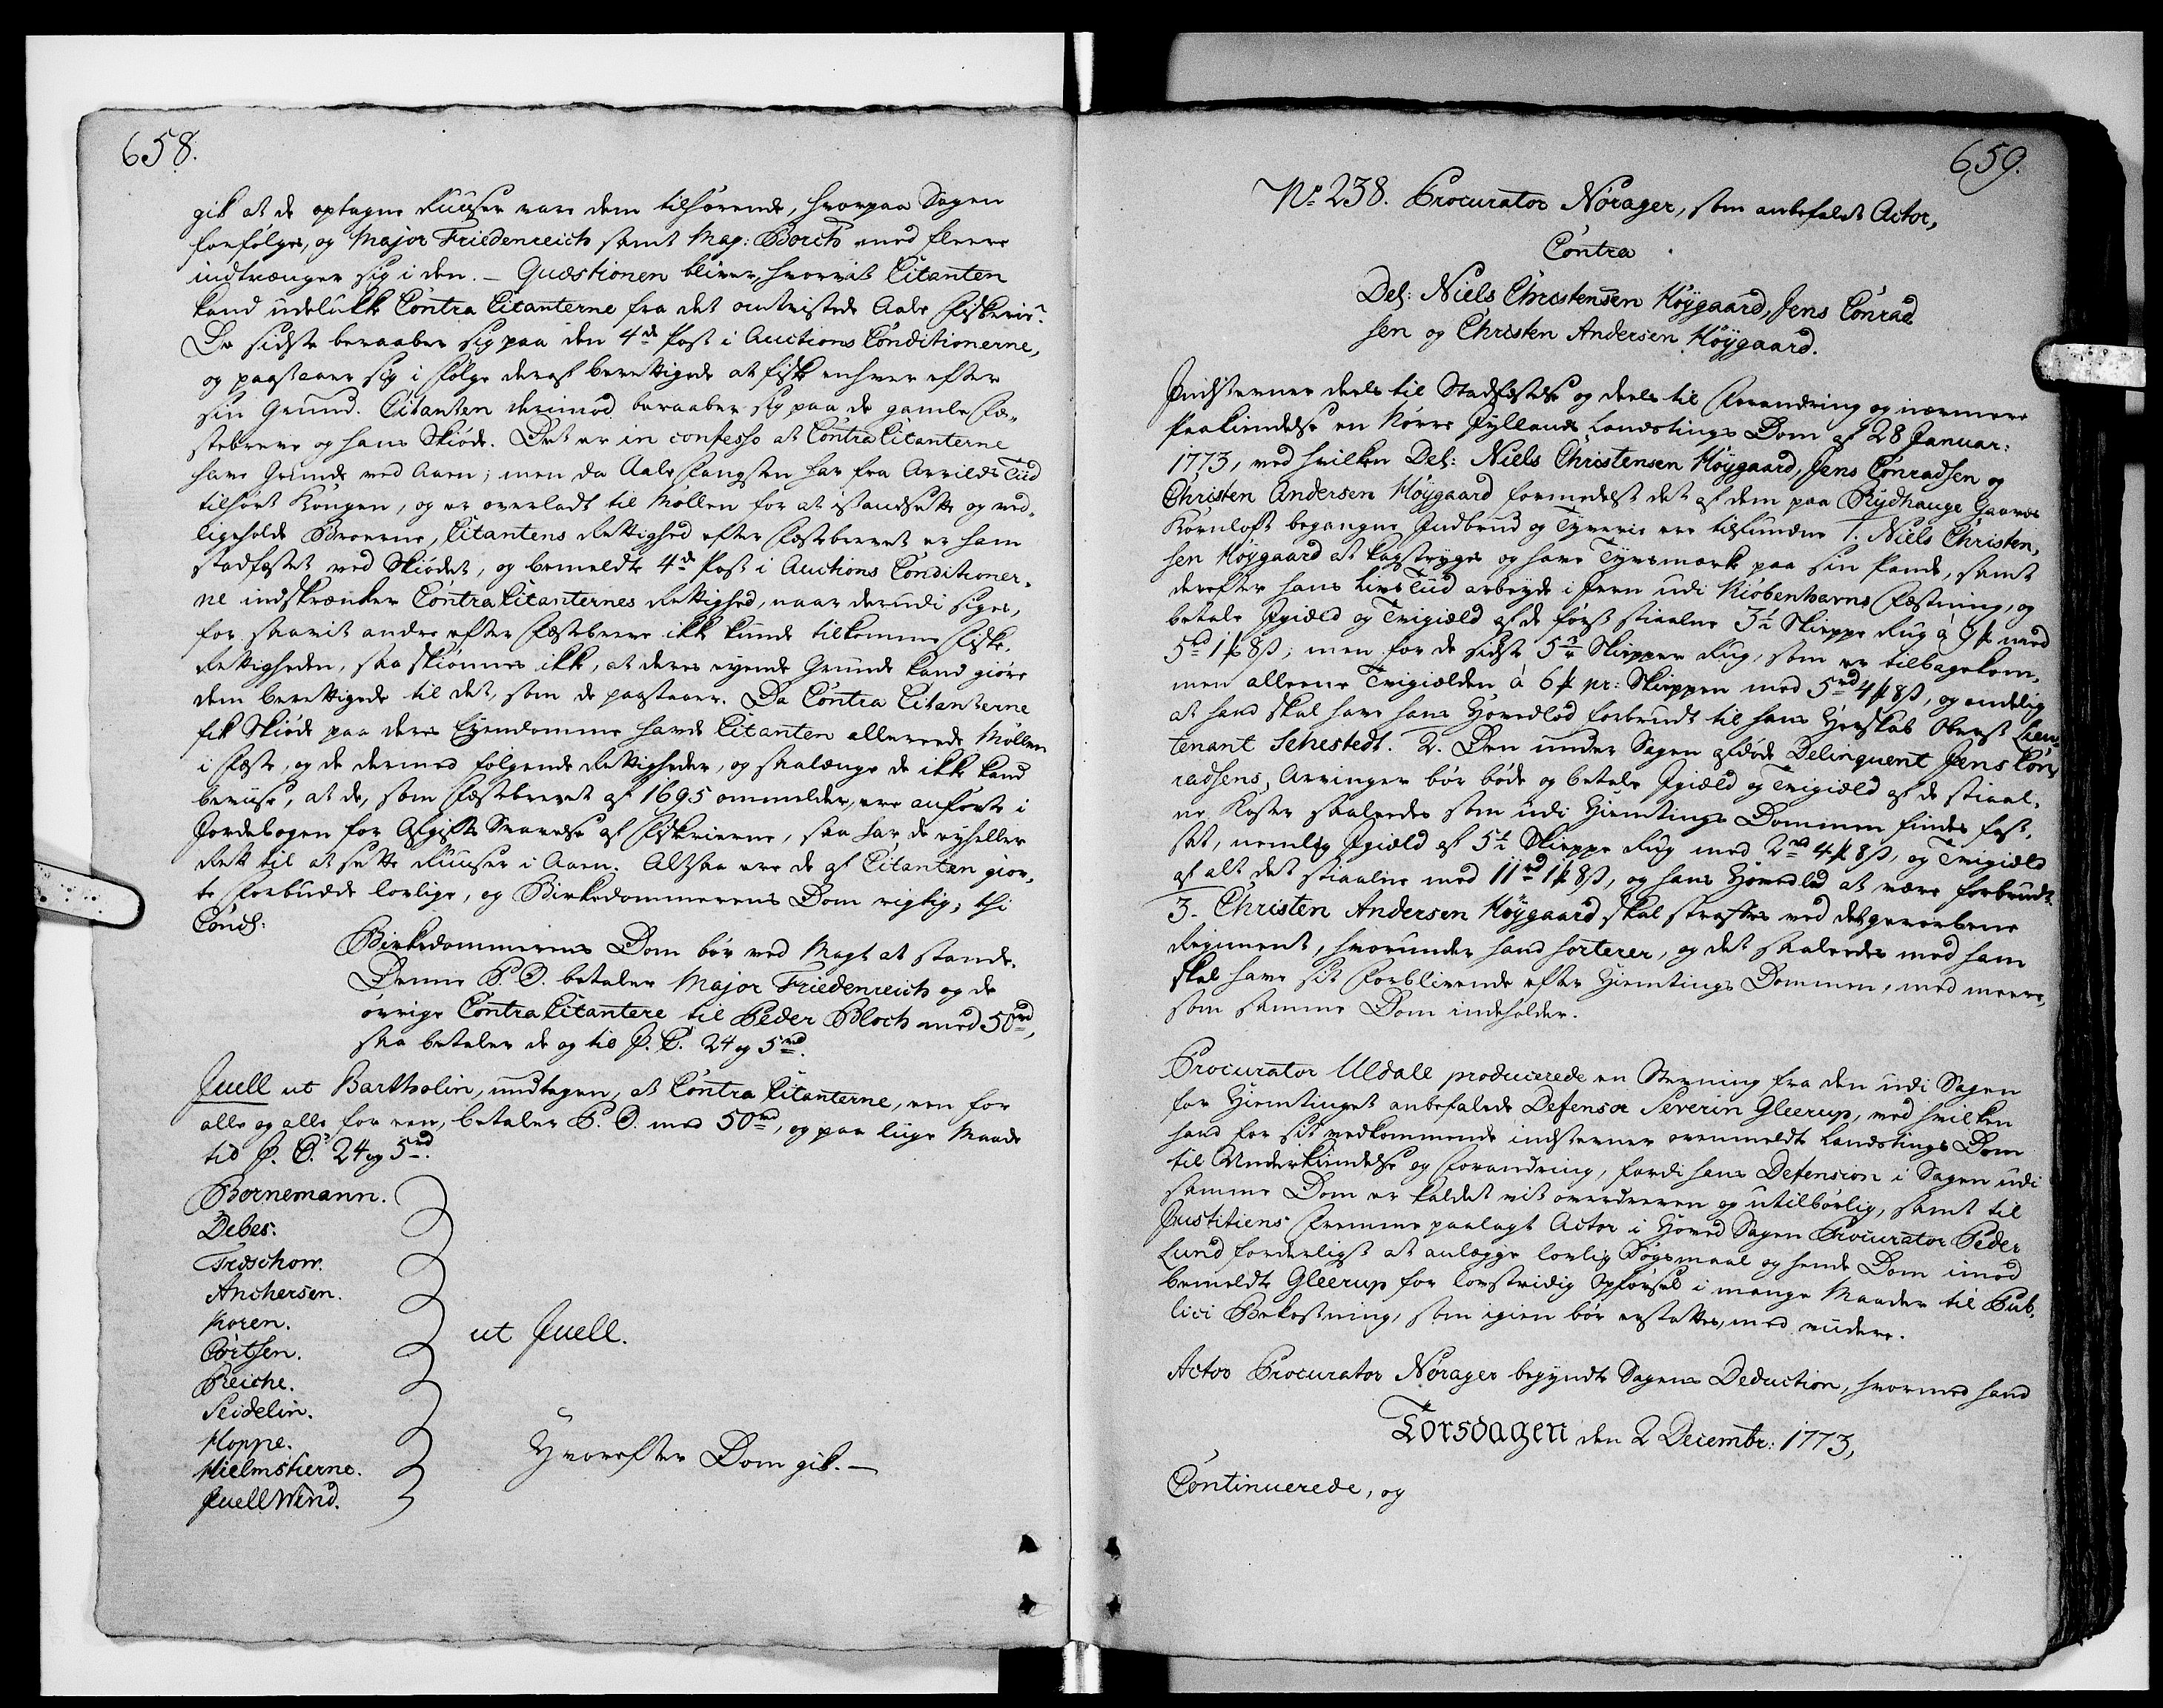 658.
gik at de optagne Ruuser vare dem tilhørende, hvorpaa Sagen
forfølges, og Major Friedenreich samt Mag: Borch med fleere
indtrænger sig i den. — Quæstionen bliver, hvorvit Citanten
kand udelukke Contra Citanterne fra det omtvistede Aale Fiskerie.
De sidste beraaber sig paa den 4de Post i Auctions Conditionerne,
og paastaaer sig i Følge deraf berettigede at fisk enhver efter
sin Grund. Citanten derimod beraaber sig paa de gamle Fæ-
stebreve og hans Skiøde. Det er in confesso at Contra Citanterne
have Grunde ved Aaen; men da Aale Fangsten har fra Arrilds Tiid
tilhørt Kongen, og er overladt til Møllen for at istandsette og ved-
ligeholde Broerne, Citantens Rettighed efter Fæstebrevet er ham
stadfæstet ved Skiødet, og bemeldte 4de Post i Auctions Conditioner-
ne indskrænker Contra Citanternes Rettighed, naar derudi siges,
for saavit andre efter Fæstebreve ikke kunde tilkomme Fiske-
Rettigheden, saa skiønnes ikke, at deres eyende Grunde kand giøre
dem berettigede til det, som de paastaaer. Da Contra Citanterne
fik Skiøde paa deres Eyendomme havde Citanten allereede Møllen
i Fæste, og de dermed følgende Rettigheder, og saalænge de ikke kand
beviise, at de, som Fæstebrevet af 1695 ommelder, ere anførte i
Jordebogen for Afgifts Svarelse af Fiskerierne, saa har de ey heller
Rett til at sette Ruuser i Aaen. Altsaa ere de af Citanten gior-
te Forbudde lovlige, og Birkedommerens Dom rigtig; thi
Concl:
Birkedommerens Dom bør ved Magt at stande.
Denne P. O. betaler Major Friedenreich og de
øvrige Contra Citantere til Peder Bloch med 50rd,
saa betaler de og til J. C. 24 og 5rd.
Juell ut Bartholin, undtagen, at Contra Citanterne, een for
alle og alle for een, betaler P. O. med 50rd, og paa liige Maade
til J. C. 24 og 5rd.
Bornemann.
Debes.
Treschow.
Anchersen.
Koren.
Cortsen.
ut Juell.
Reiche.
Seidelin.
Hoppe.
Hielmstierne.
Hvorefter Dom gik. —
Juell Wind.
659.
No 238. Procurator Nørager, som anbefalet Actor,
Contra
Del: Niels Christensen Høygaard, Jens Conrad
sen og Christen Andersen Høygaard.
Indstevner deels til Stadfæstelse og deels til Forandring og nærmere
Paakiendelse en Nørre Jyllands Landstings Dom af 28 Januar:
1773, ved hvilken Del: Niels Christensen Høygaard, Jens Conradsen og
Christen Andersen Høygaard formedelst det af dem paa Rydhauge Gaards
Kornloft begangne Indbrud og Tyverie ere tilfundne 1. Niels Christen-
sen Høygaard at kagstryges og have Tyvsmærke paa sin Pande, samt
derefter hans Livs Tiid arbeyde i Jern udi Kiøbenhavns Fæstning, og
betale Igiæld og Tvigiæld af de først stiaalne 3½ Skieppe Rug à 9 ℔ med
5rd 1 ℔ 8 ß; men for de sidste 5½ Skiepper Rug, som er tilbagekom-
men alleene Tvigiælden à 6 ℔ pr: Skieppen med 5rd 4 ℔ 8 ß, og endelig
at hand skal have hans Hovedlod forbrudt til hans Herskab Oberst Lieu-
tenant Sehestedt. 2. Den under Sagen afdøde Delinquent Jens Con-
radsens Arvinger bør bøde og betale Igiæld og Tvigiæld af de stiaal-
ne Koster saaleedes som udi Hiemtings Dommen findes fast-
sat, nemlig Igiæld af 5½ Skieppe Rug med 2rd 4 ℔ 8 ß, og Tvigiæld
af alt det stiaalne med 11rd 1 ℔ 8 ß, og hans Hovedlod at være forbrudt.
3. Christen Andersen Høygaard skal straffes ved det geworbene
Regiment, hvorunder hand sorterer, og det saaleedes med ham
skal have sit Forblivende efter Hiemtings Dommen, med meere,
som samme Dom indeholder.
Procurator Uldall producerede en Stevning fra den udi Sagen
for Hiemtinget anbefalede Defensor Severin Gleerup, ved hvilken
hand for sit vedkommende indstevner ovenmeldte Landstings Dom
til Underkiendelse og Forandring, fordi hans Defension i Sagen udi
samme Dom er kaldet vit overdreven og utilbørlig, samt til
Justitiens Fremme paalagt Actor i Hoved Sagen Procurator Peder
Lund forderligst at anlægge lovlig Søgsmaal og hende Dom imod
bemeldte Gleerup for lovstridig Opførsel i mange Maader til Pub-
lici Bekostning, som igien bør erstattes, med viidere.
Actor Procurator Nørager begyndte Sagens Deduction, hvormed hand
Torsdagen den 2 Decembr: 1773,
Continuerede, og